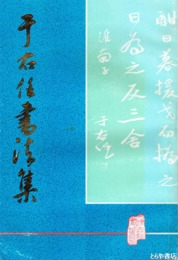 于右任書法集
酣日暮援戈而撝之
日為之反三舍
淮南子
于右任
とらや書房